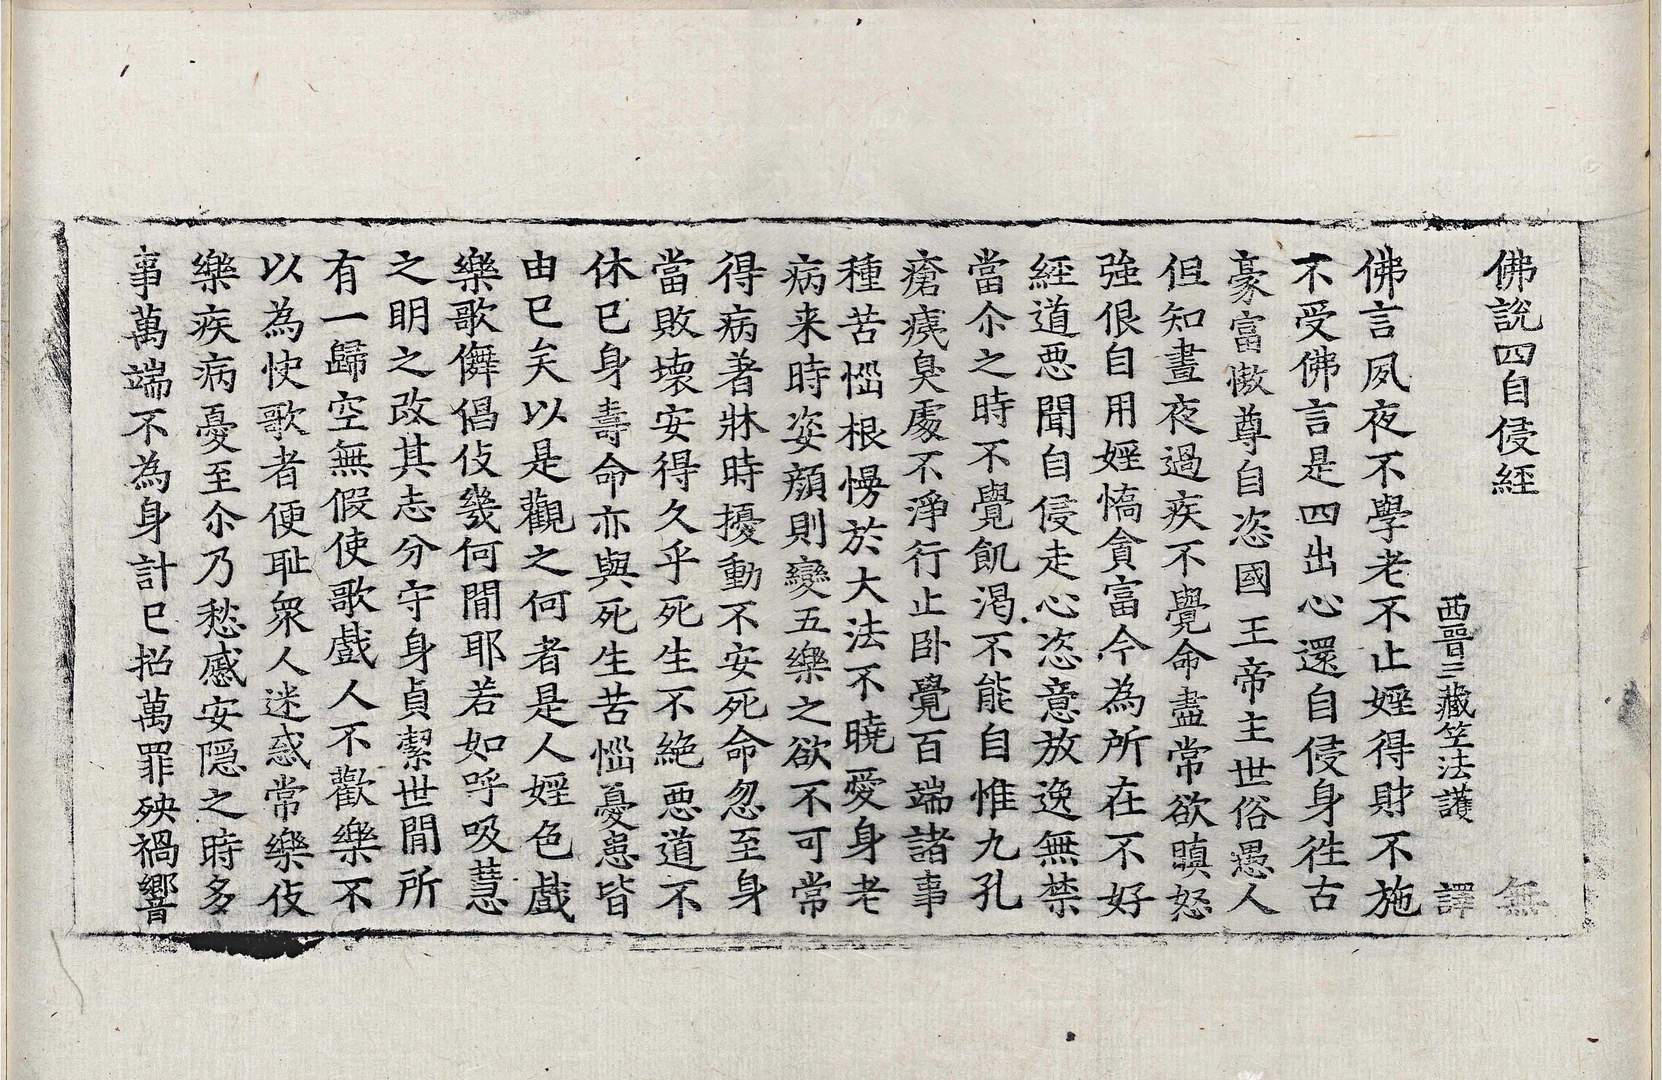 佛說四自侵經 無
西晉三藏竺法護 譯
佛言夙夜不學老不止婬得財不施
不受佛言是四出心還自侵身徃古
豪富慠尊自恣國王帝主世俗愚人
但知晝夜過疾不覺命盡常欲瞋怒
強佷自用婬㥬貪富今為所在不好
經道惡聞自侵走心恣意放逸無禁
當尒之時不覺飢渴不能自惟九孔
瘡痍臭處不淨行止卧覺百端諸事
種苦惱根慢於大法不曉愛身老
病来時姿顏則變五樂之欲不可常
得病著牀時擾動不安死命忽至身
當敗壞安得久乎死生不絶惡道不
休已身壽命亦與死生苦惱憂患皆
由已矣以是觀之何者是人婬色戲
樂歌儛倡伎幾何閒耶若如呼吸慧
之明之改其志分守身貞潔世閒所
有一歸空無假使歌戲人不歡樂不
以為快歌者便耻衆人迷惑常樂伎
樂疾病憂至尒乃愁慼安隱之時多
事萬端不為身計已招萬罪殃禍響